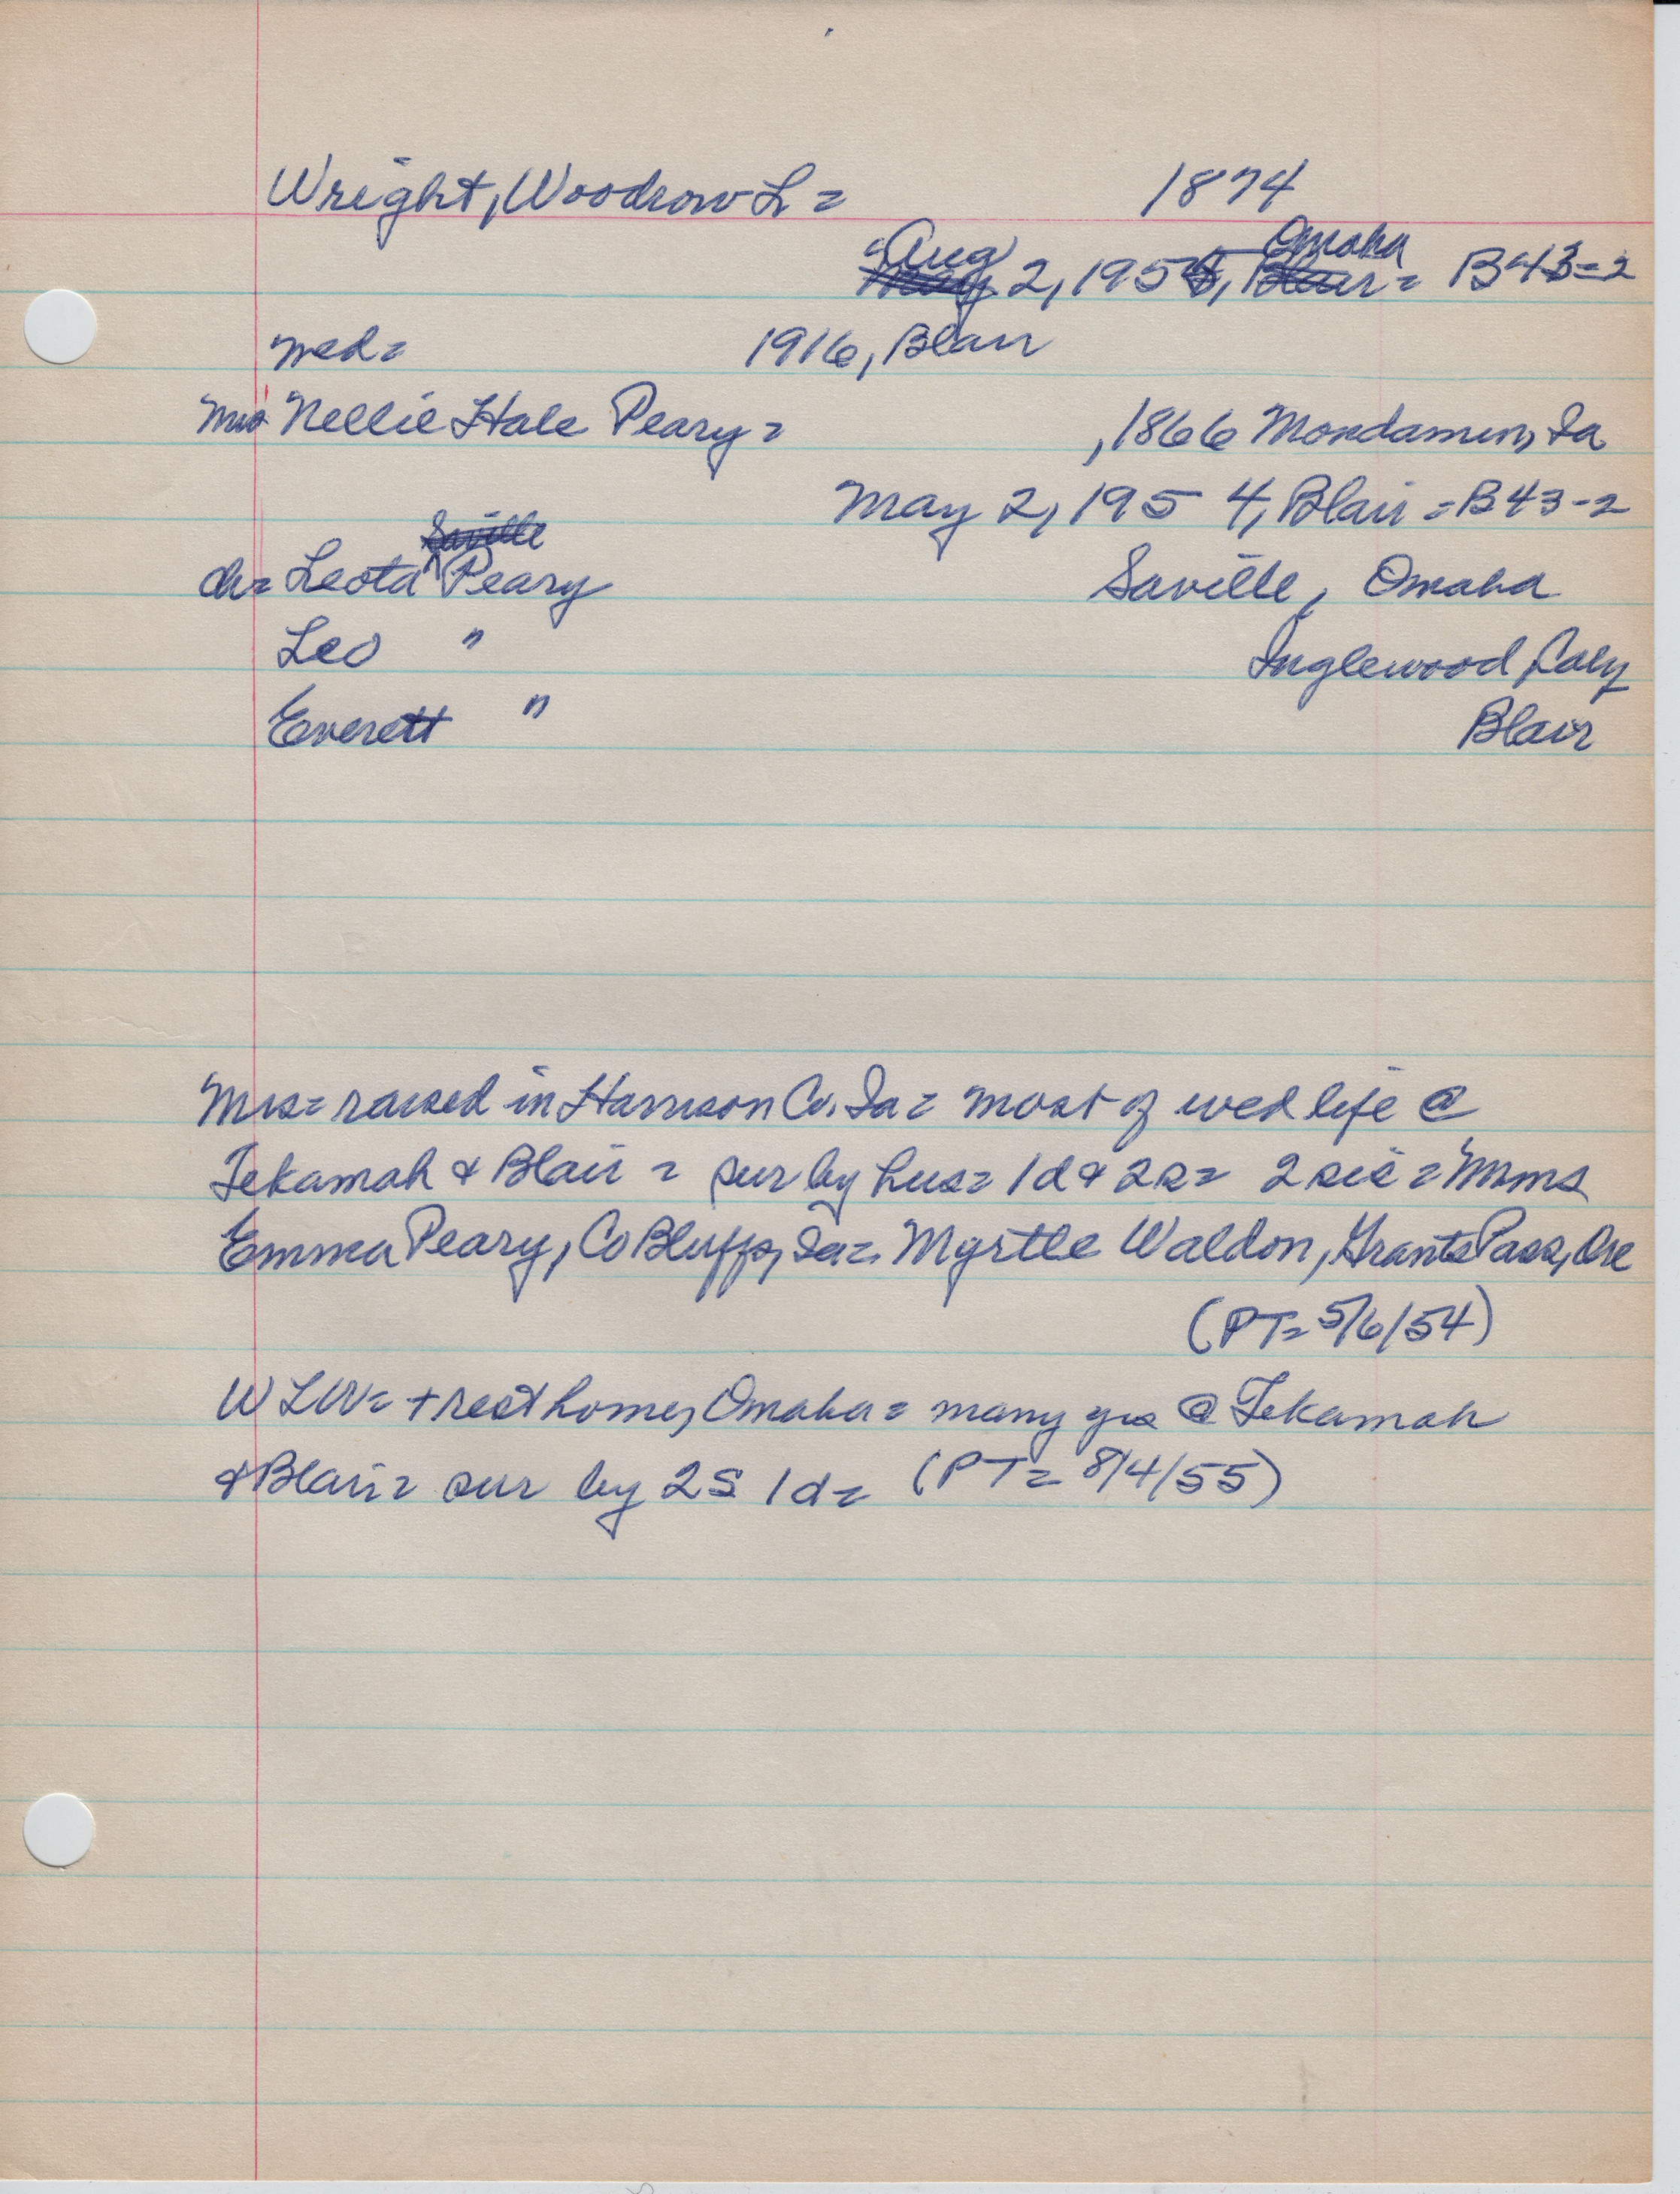 Wright, Woodrow L = 1874
Aug 2, 1955, Omaha = B43-2
wed = 1916, Blair
Mrs Nellie Hale Peary = , 1866 Mondamin, Ia
May 2, 1954, Blair = B43-2
Saville
ch = Leota Peary Saville, Omaha
Leo " Inglewood, Calif
Everett " Blair
Mrs = raised in Harrison Co. Ia = most of wed life @
Tekamah & Blair = sur by hus = 1d & 2s = 2 sis = Mmes
Emma Peary, Co Bluffs, Ia = Myrtle Waldon, Grants Pass, Ore
(PT = 5/6/54)
WLW = + rest home, Omaha = many yrs @ Tekamah
& Blair = sur by 2S 1d = (PT = 8/4/55)